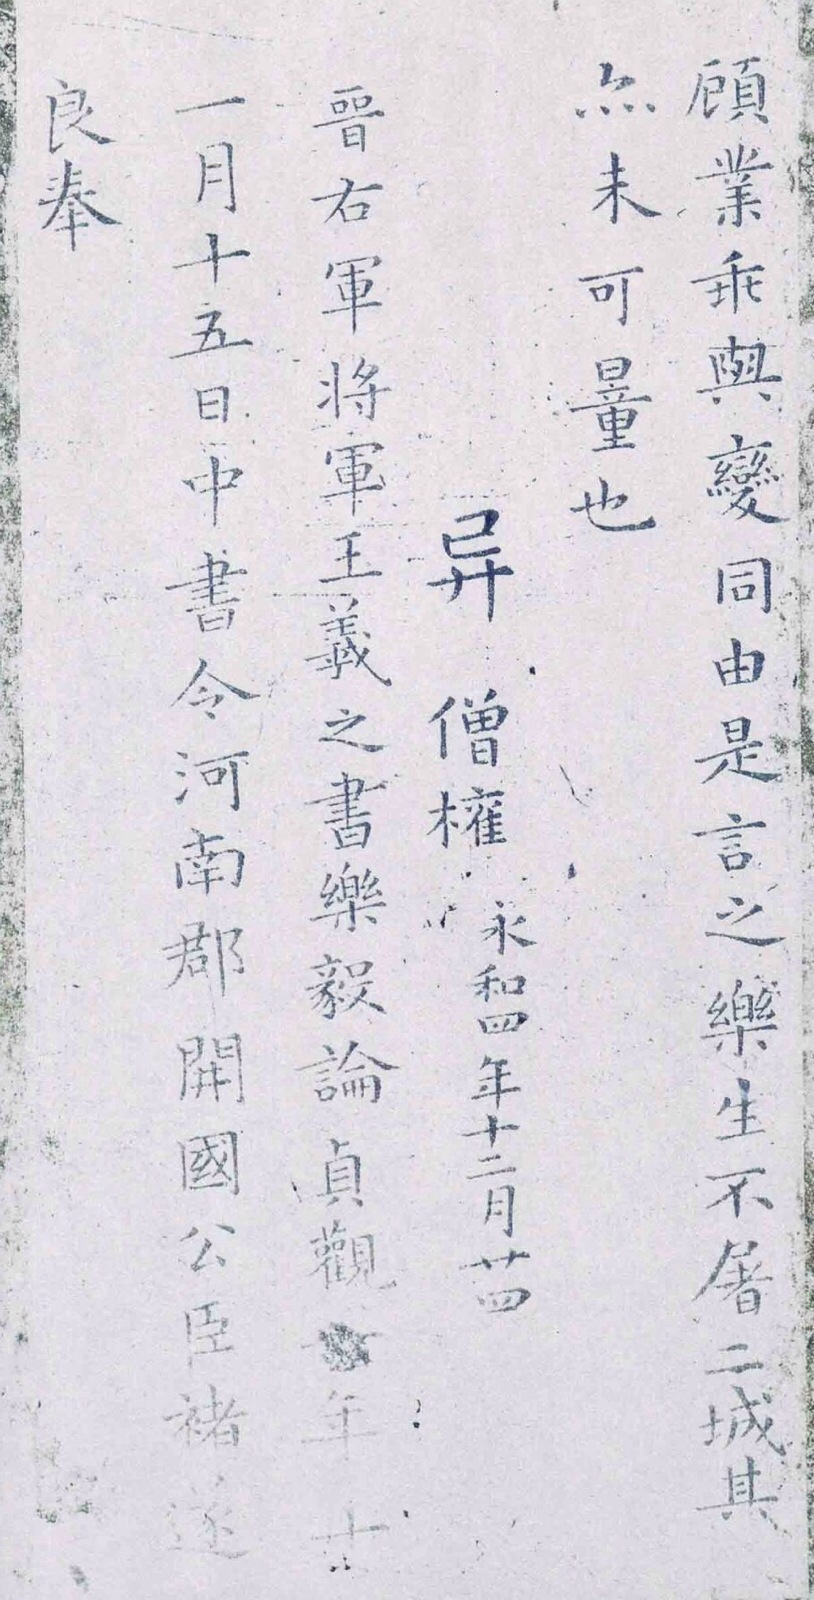 顧業乖與變同由是言之樂生不屠二城其
亦未可量也
异 僧權 永和四年十二月廿四
晉右軍將軍王羲之書樂毅論貞觀年十
一月十五日中書令河南郡開國公臣褚遂
良奉